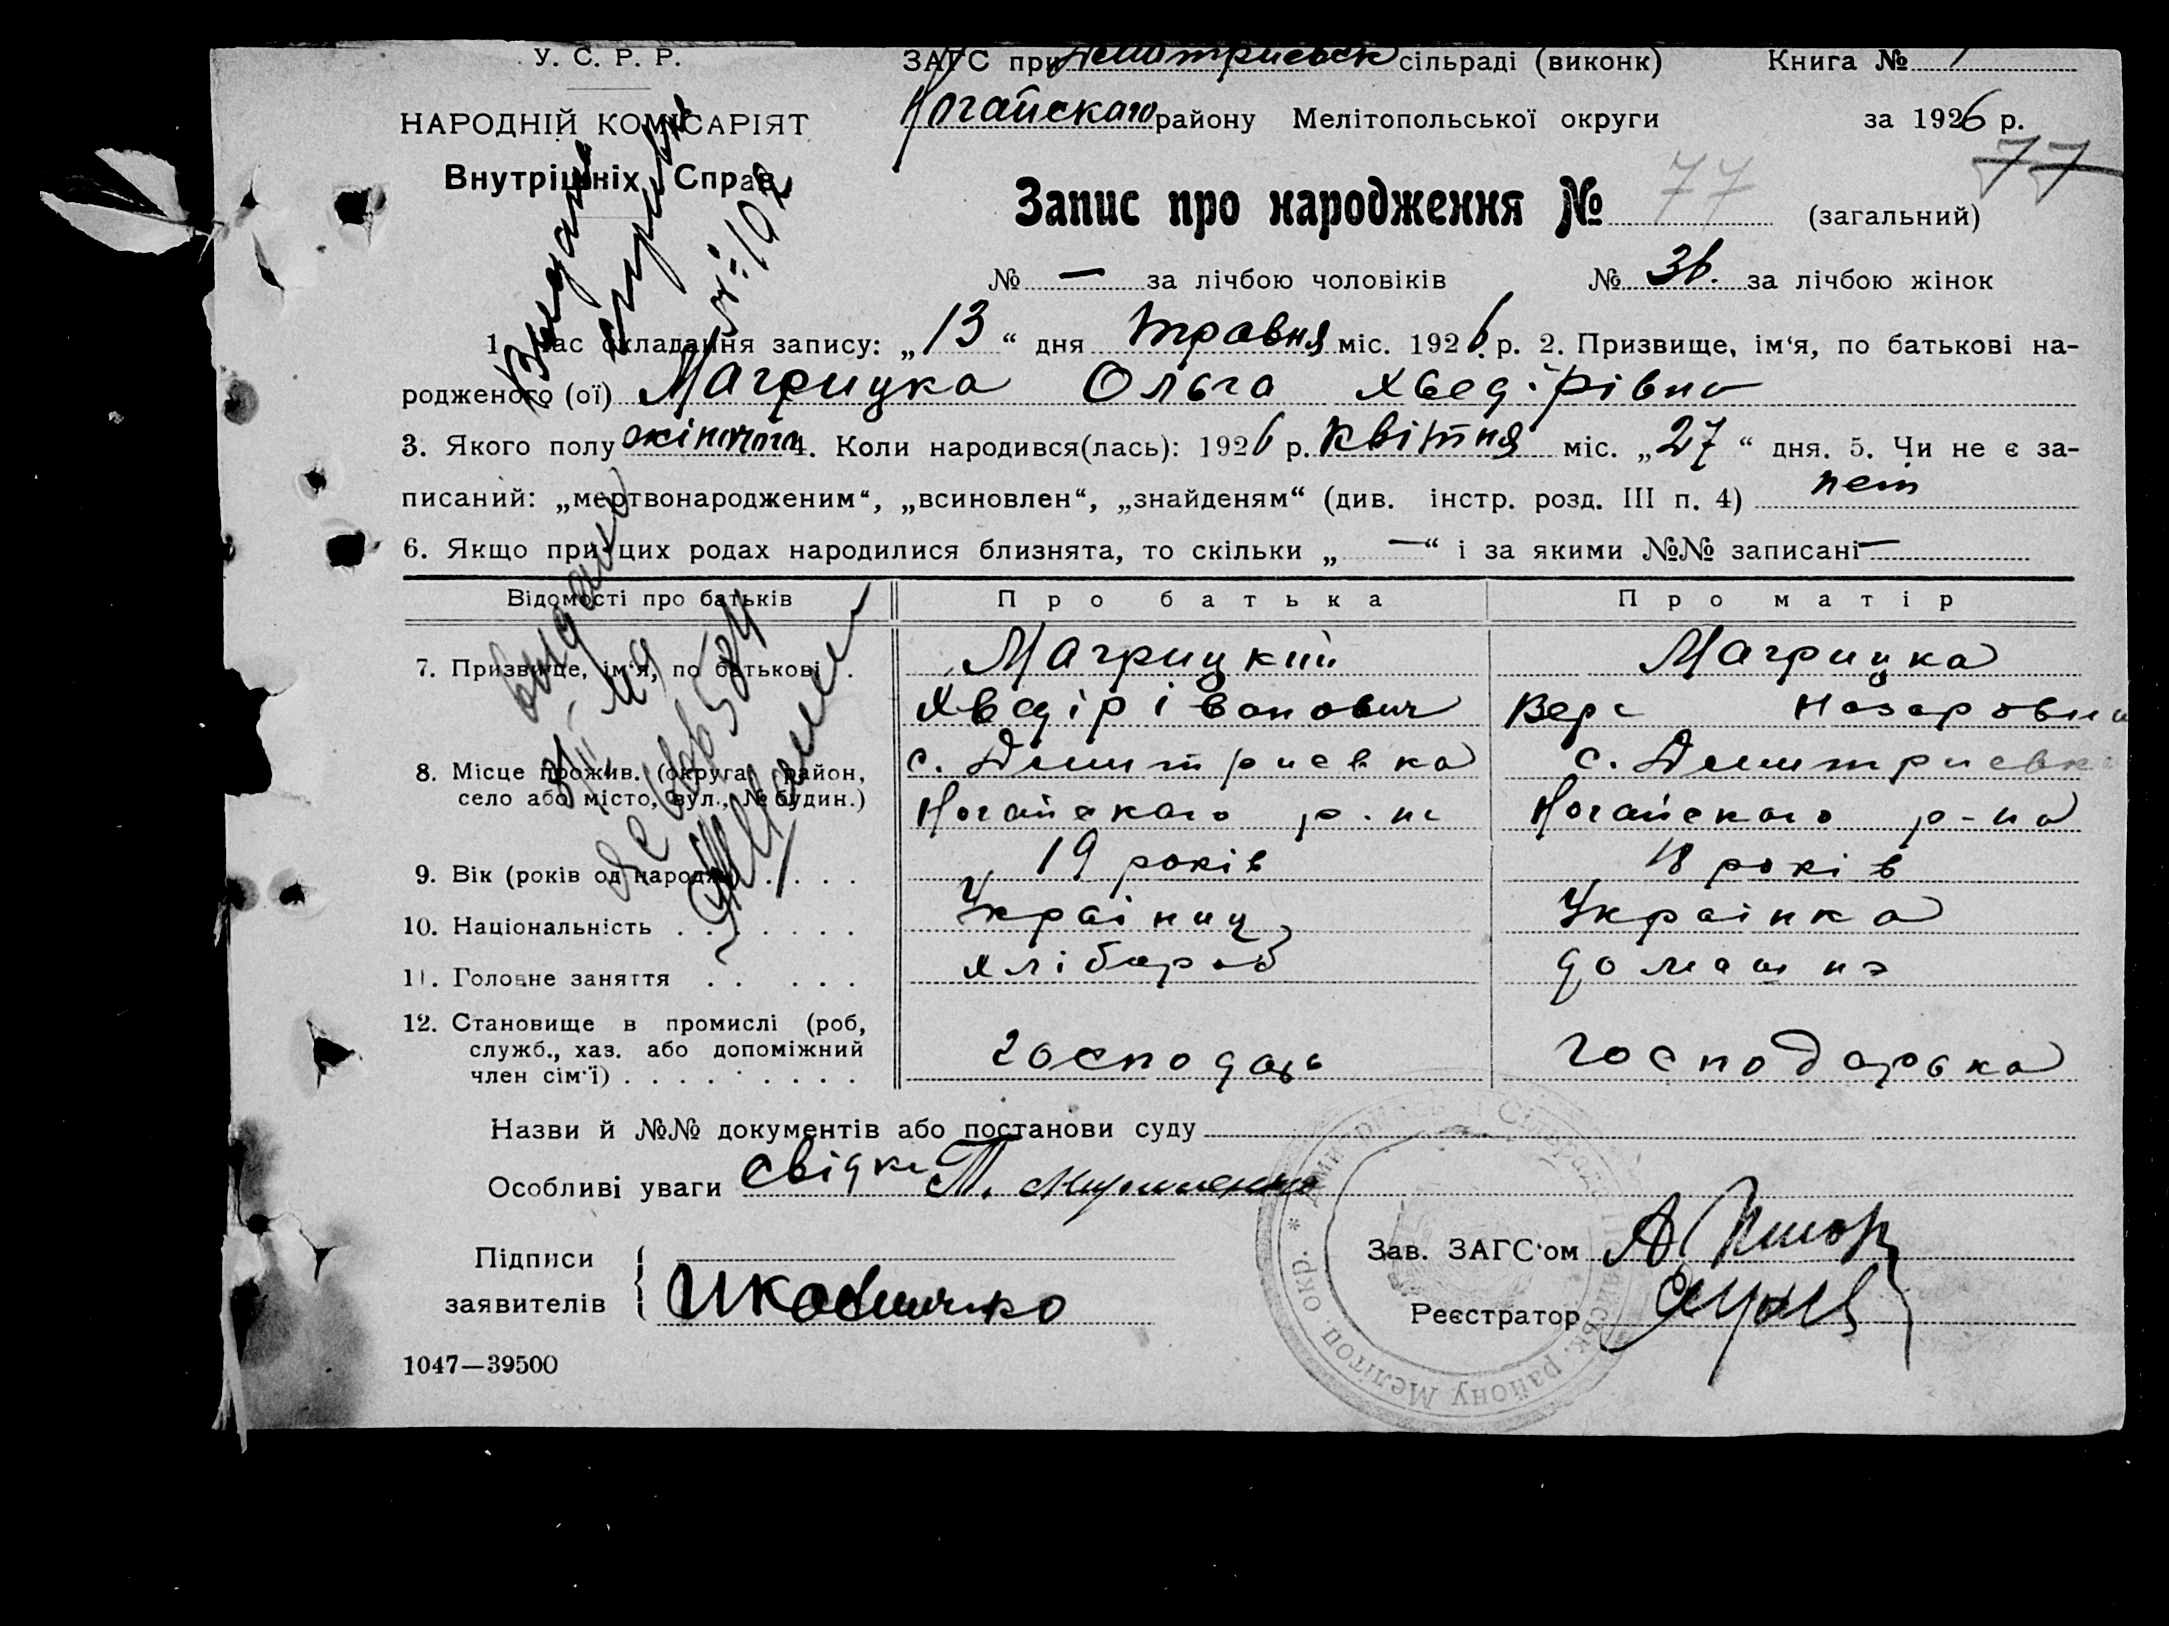 У. С. Р. Р.
НАРОДНІЙ КОМІСАРІЯТ
Внутрішніх Справ
ЗАГС при Демитриевск сільраді (виконк) Книга № 1
Ногайскаго району Мелітопольської округи за 1926 р.
77
Запис про народження № 77 (загальний)
№ — за лічбою чоловіків № 36. за лічбою жінок
1. Час складання запису: „13“ дня травня міс. 1926 р. 2. Призвище, ім‘я, по батькові на-
родженого (ої) Магрицка Ольга Хведірівна
3. Якого полу жіночого 4. Коли народився(лась): 1926 р. квітня міс. „27“ дня. 5. Чи не є за-
писаний: „мертвонародженим“, „всиновлен“, „знайденям“ (див. інстр. розд. III п. 4) нет
6. Якщо при цих родах народилися близнята, то скільки „—“ і за якими №№ записані —
Відомості про батьків Про батька Про матір
7. Призвище, ім‘я, по батькові . Магрицкий Магрицка
Хведір Іванович Вера Назаровна
8. Місце прожив. (округа, район, с. Демитриевка с. Демитриевка
село або місто, вул., № будин.) Ногайскаго р-на Ногайскаго р-на
9. Вік (років од народж.) . . . . 19 років 18 років
10. Національність . . . . . . . Украіниц Украінка
11. Головне заняття . . . . . хлібороб домашнэ
12. Становище в промислі (роб,
служб., хаз. або допоміжний господарь господарька
член сім‘ї) . . . . . . . . .
Назви й №№ документів або постанови суду
Особливі уваги Свідки Т.
Підписи
заявителів
Зав. ЗАГС‘ом А.
Реєстратор
1047—39500
Сільрада району МеліTOп. окр. *